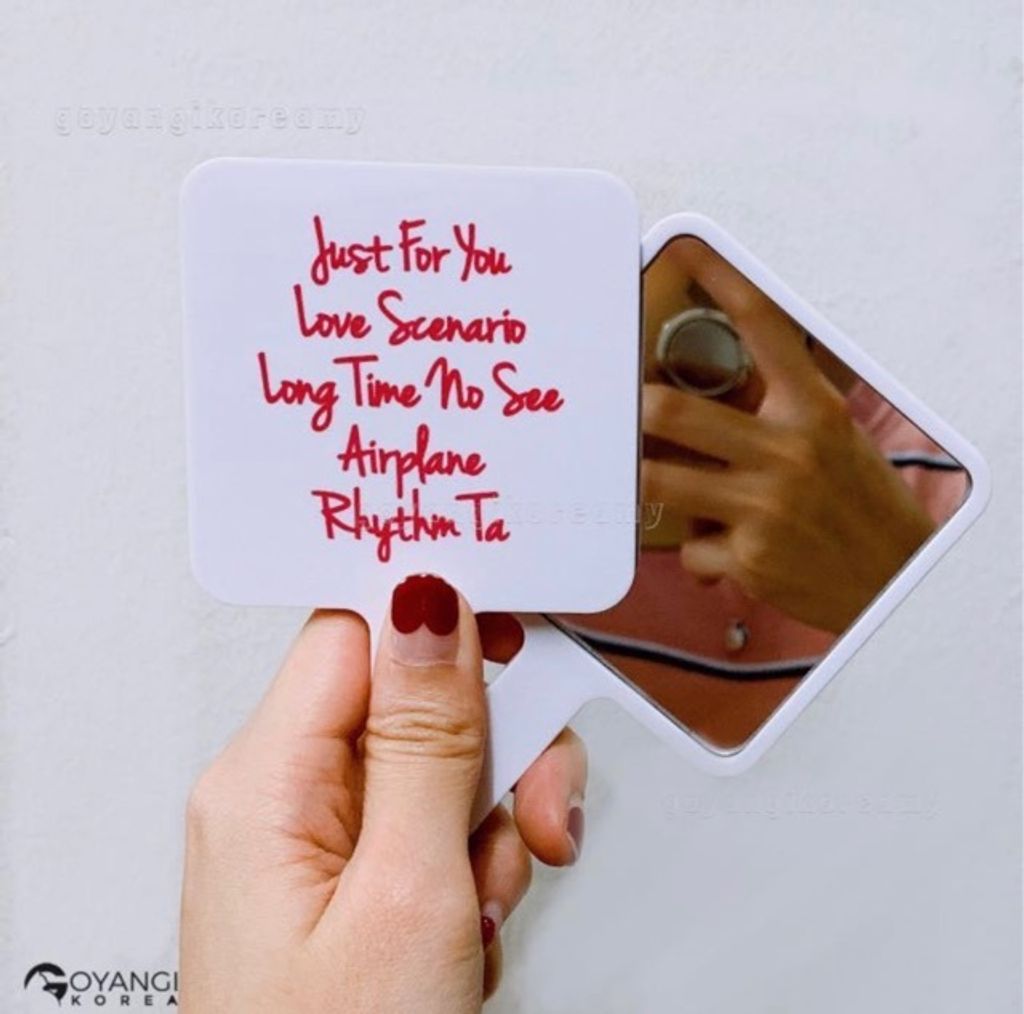 goyangikoreamy
Just For You
Love Scenario
Long Time No See
Airplane
Rhythm Ta
goyangikoreamy
goyangikoreamy
GOYANGI
KOREA